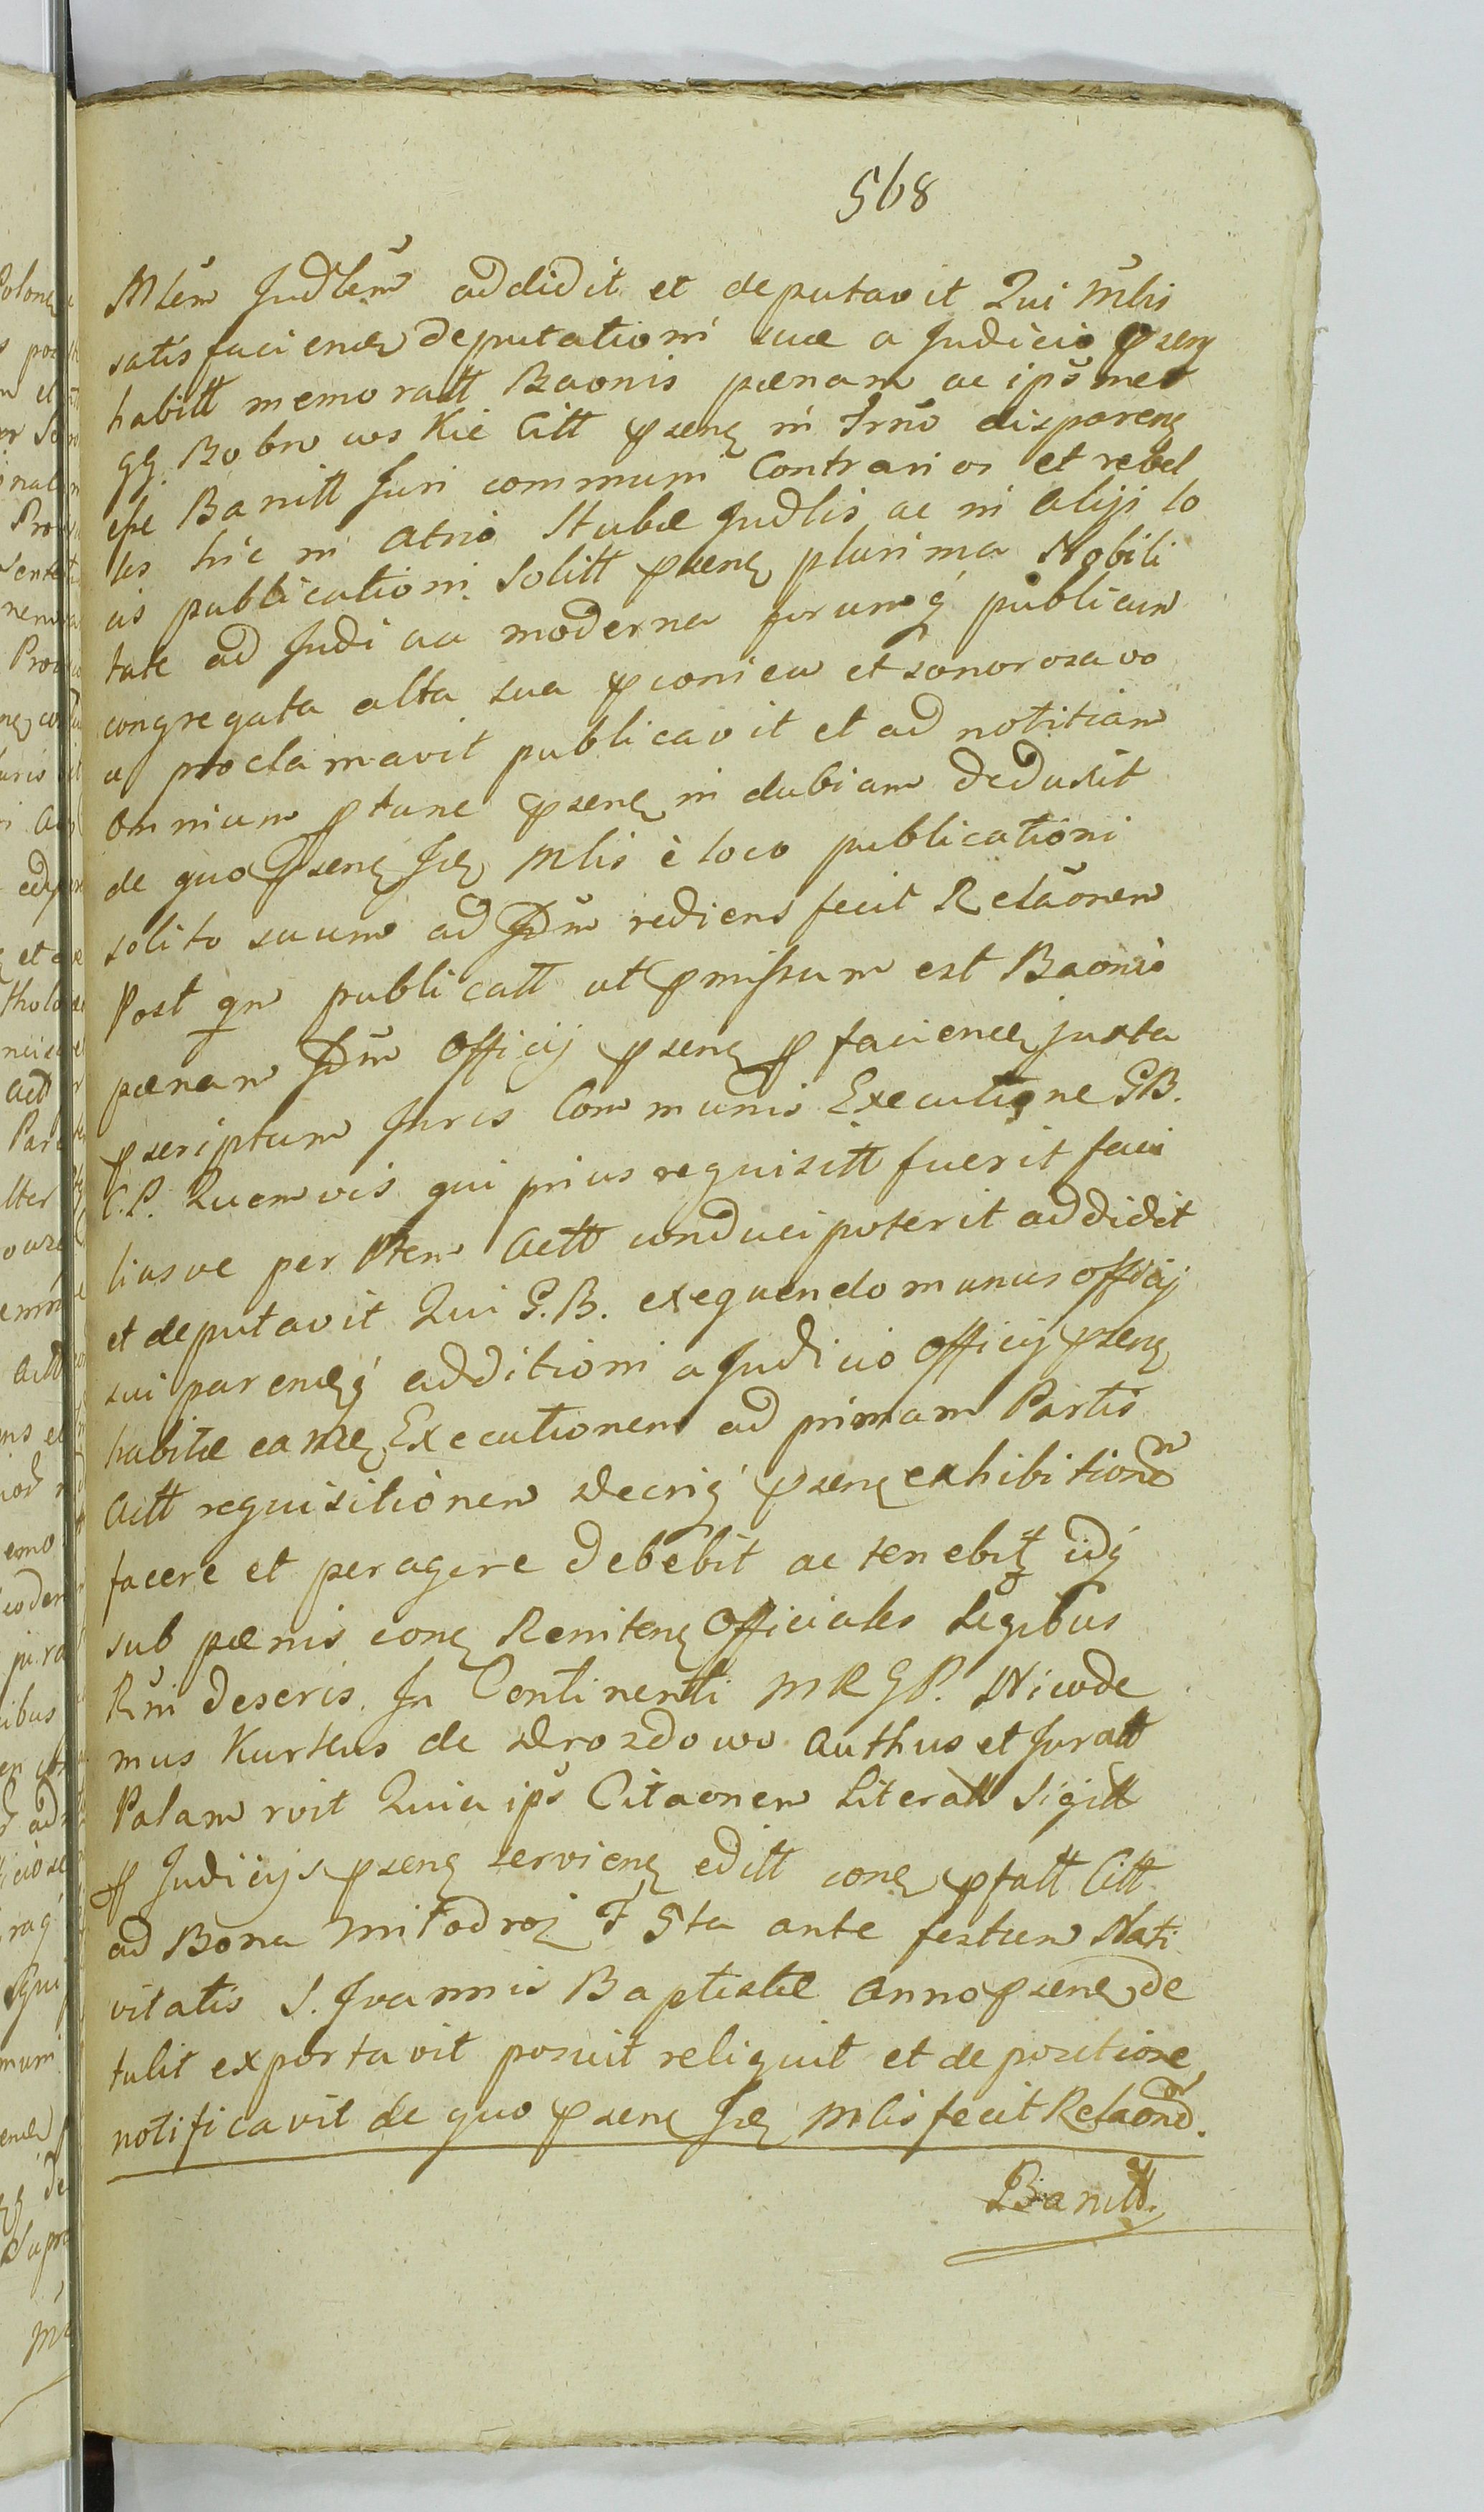 568
Mlem Judlem addidit et deputavit Qui Mlis
satis faciendo deputationi suæ a Judicio psenq
habitt memoratt Baonis pænam ac ipsmet
GG. Bobrowskie Citt psenq in Trno disparenq
esse Banitt Juri communi Contrarios et rebel
les hic in atrio Stubæ Judlis ac in alijs lo
cis publicationi solitt psenq plurima Nobili
tate ad Judicia moderna forumq publicum
congregata alta sua pconica et sonorosa vo
ce proclamavit publicavit et ad notitiam
omnium ptunc psenq indubiam deduxit
de quo psenq Jcq Mlis è loco publicationi
solito suum ad Jdm rediens fecit Relãonem
Post qm publicatt ut pmissum est Baonis
pænam Jdm Officij psenq p facienda juxta
pscriptum Juris Communis Executione GB.
C.P. Quemvis qui prius requisitt fuerit faci
liusve per Ptem Actt conduci poterit addidit
et deputavit Qui G.B. exequendo munus officij
sui parendoq additioni a Judicio Officij psenq
habitæ eandq Executionem ad primam Partis
Actt requisitionem Decriq psenq exhibitionem
facere et peragere debebit ac tenebitz idq
sub pænis conq Renitenq Officiales Legibus
Rni deseris. In Continenti MRGP. Nicode
mus Kurtens de Drozdowo Authus et Juratt
Palam rvit Quia ips Citaonem Literatt Sigill
p Judicijs psenq servienq editt conq pfatt Citt
ad Bona Mitodroz F 5ta ante festum Nati
vitatis S. Joannis Baptistæ Anno psenq de
tulit exportavit posuit reliquit et de positione
notificavit de quo psenq Jcq Mlis fecit Relaonem.
Banitt.